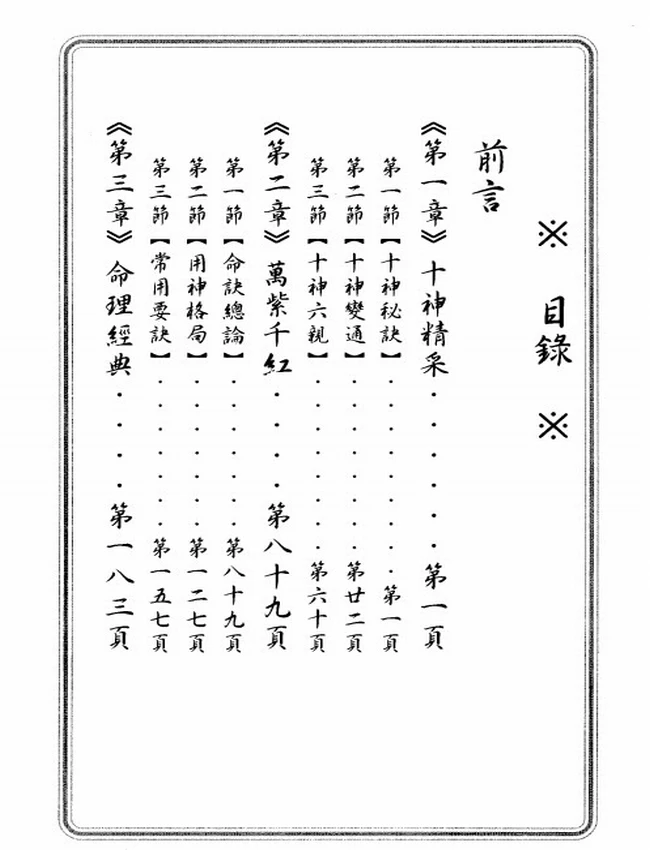 ※ 目錄 ※
前言
《第一章》十神精采．．．．．．第一頁
第一節【十神秘訣】．．．．．．．第一頁
第二節【十神變通】．．．．．．．第廿二頁
第三節【十神六親】．．．．．．．第六十頁
《第二章》萬紫千紅．．．．第八十九頁
第一節【命訣總論】．．．．．．第八十九頁
第二節【用神格局】．．．．．．第一二七頁
第三節【常用要訣】．．．．．．第一五七頁
《第三章》命理經典．．．．第一八三頁